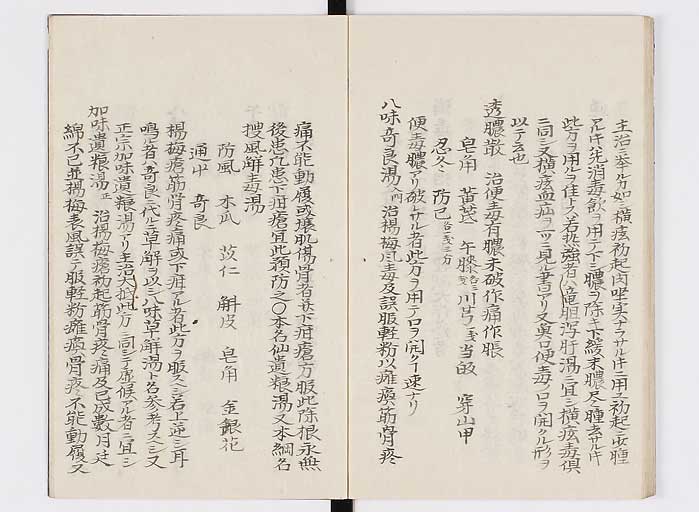 主治ニ挙ルカ如ク横痃初起肉堅実ナラサルキニ用ユ初起出腫
アルキハ先消毒飲ヲ用テ下シ膿ヲ除キ下後未膿尽ス腫去サルキ
此方ヲ用ルヲ佳トス若熱強者ハ竜胆泻肝湯ニ宜シ横痃毒倶
ニ同シ又横痃血疝ヲ一ツニ見ル書アリ又魚口便毒ノ口ヲ開クル形ヲ
以テ云也
透膿散 治便毒有膿未破作痛作脹
皂角 黄芪 午膝 川芎 当皈 穿山甲
忍冬 防已
便毒膿アリ破レサル者此方ヲ用テ口ヲ開ク速ナリ
八味奇良湯 治楊梅風毒及誤服軽粉以癱瘓筋骨疼
痛不能動履或壊肌傷骨者又下疳瘡方服此除根永無
後患凢患下疳瘡宜此預防之〇本名仙遺粮湯又本綱名
搜風解毒湯
防風 木瓜 苡仁 鮮皮 皂角 金銀花
通中 奇良
楊梅瘡筋骨疼痛或下疳アル者此方ヲ服スヘシ若上逆シ耳
鳴者奇良ニ代ニ萆解ヲ以シ八味萆解湯ト名参考スヘシ又
正宗加味遺粮湯アリ主治大抵此方ニ同シテ虚候アル者ニ宜シ
加味遺粮湯正 治楊梅瘡初起筋骨疼痛及已成数月延
綿不已並楊梅表風誤テ服軽粉癱瘓骨疼不能動履又